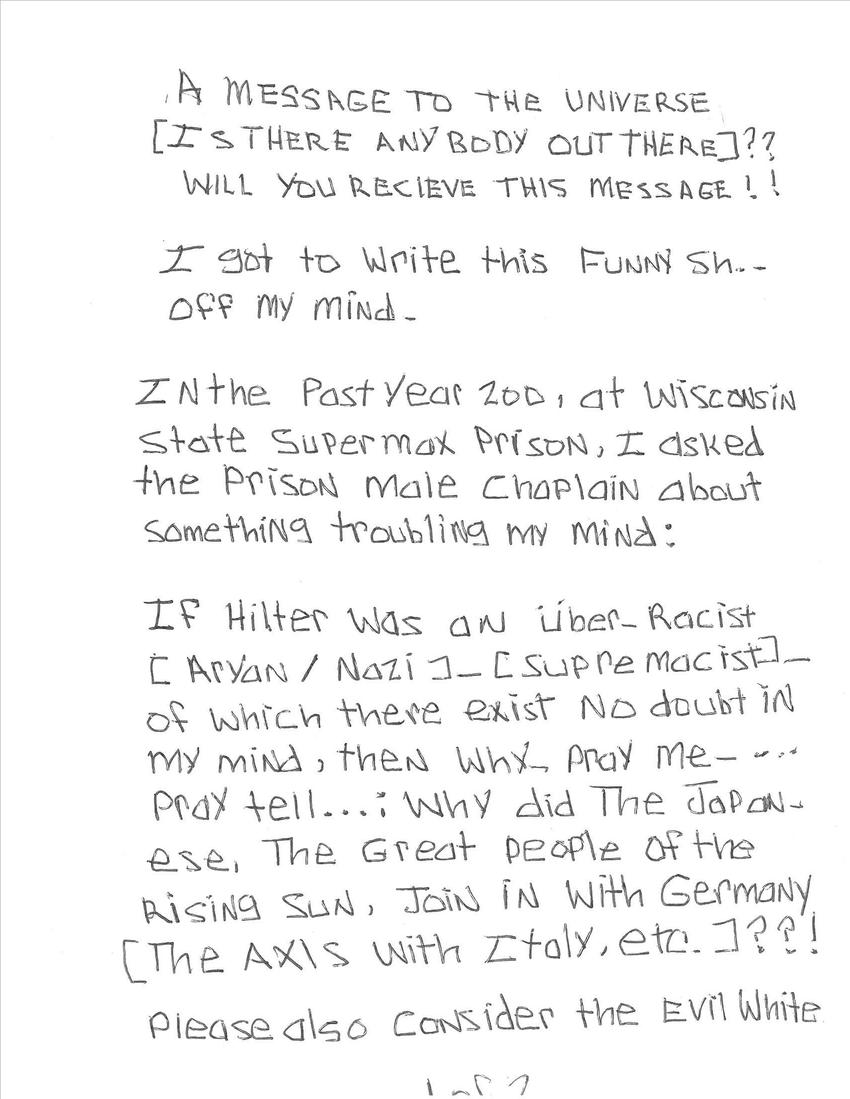 A MESSAGE TO THE UNIVERSE
[IS THERE ANYBODY OUT THERE]??
WILL YOU RECIEVE THIS MESSAGE!!
I got to write this FUNNY Sh..-
off my mind-
IN the Past Year 200, at Wisconsin
State Supermax Prison, I asked
the Prison Male Chaplain about
something troubling my mind:
If Hilter was an über-Racist
[Aryan / Nazi]-[Supremacist]-
of which there exist No doubt in
my mind, then Why- pray me- ....
pray tell...: Why did The Japan-
ese, The Great people of the
Rising Sun, Join in with Germany
[The AXIS with Italy, etc.]??!
Please also consider the Evil White
1 of 2